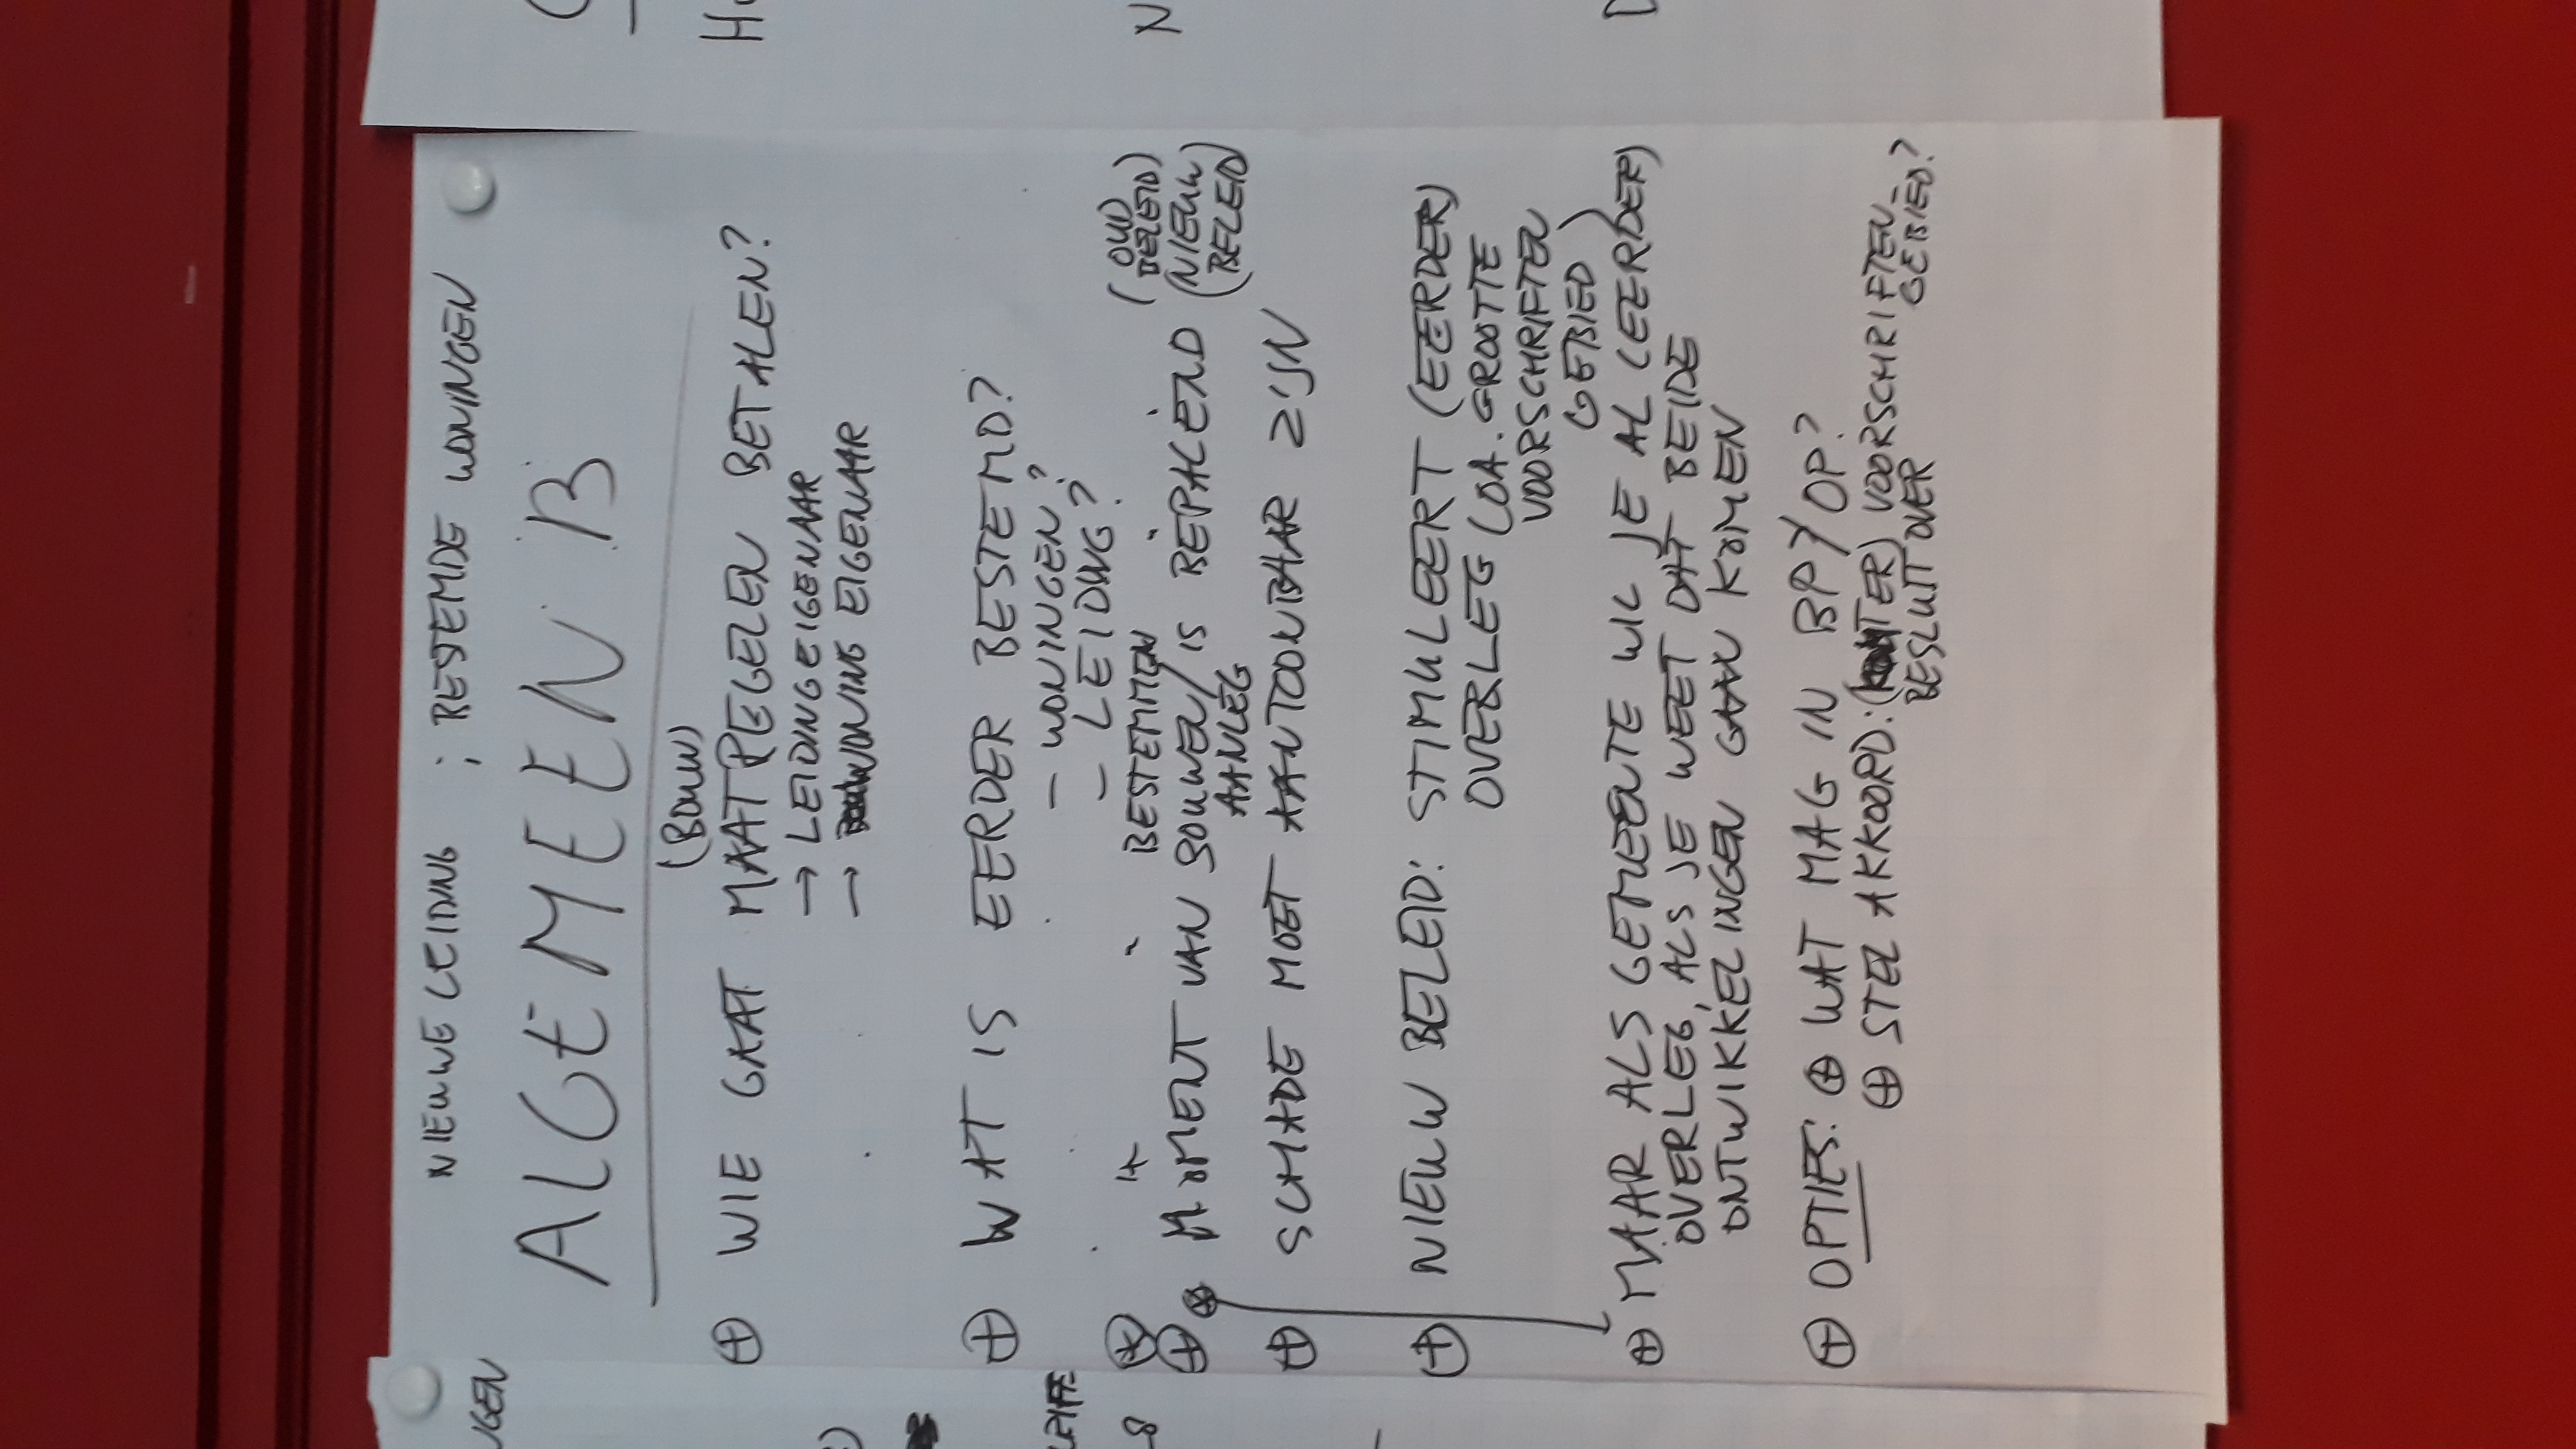 NIEUWE LEIDING ; BESTEMDE WONINGEN
ALGEMEEN B
(BOUW)
⊕ WIE GAAT MAATREGELEN BETALEN?
→ LEIDINGEIGENAAR
→ WONING EIGENAAR
⊕ WAT IS EERDER BESTEMD?
- WONINGEN?
- LEIDING?
BESTEMMEN (OUD BELEID)
⊕ MOMENT VAN BOUWEN/ IS BEPALEND (NIEUW
AANLEG (BELEID)
⊕ SCHADE MOET AANTOONBAAR ZIJN
⊕ NIEUW BELEID: STIMULEERT (EERDER)
OVERLEG (OA. GROOTTE
VOORSCHRIFTEN
GEBIED)
⊕ MAAR ALS GEMEENTE WIL JE AL (EERDER)
OVERLEG, ALS JE WEET DAT BEIDE
ONTWIKKELINGEN GAAN KOMEN
⊕ OPTIES: ⊕ WAT MAG IN BP/OP?
⊕ STEL AKKOORD: VOORSCHRIFTEN
BESLUIT OVER GEBIED?
NGEN
H
N
8